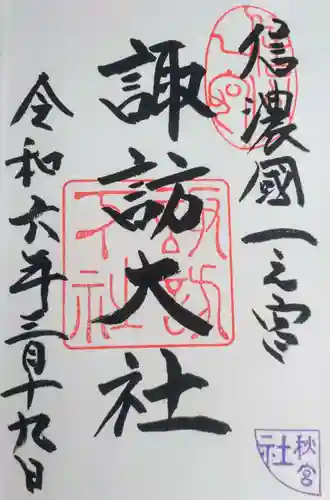 信濃國一之宮
諏訪大社
令和六年三月十九日
秋宮
社